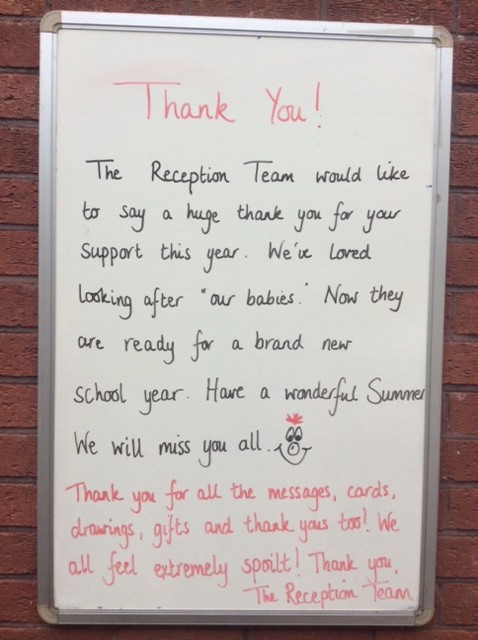 Thank You!
The Reception Team would like
to say a huge thank you for your
support this year. We've loved
looking after "our babies." Now they
are ready for a brand new
school year. Have a wonderful Summer
We will miss you all.
Thank you for all the messages, cards,
drawings, gifts and thank yous too! We
all feel extremely spoilt! Thank you.
The Reception Team